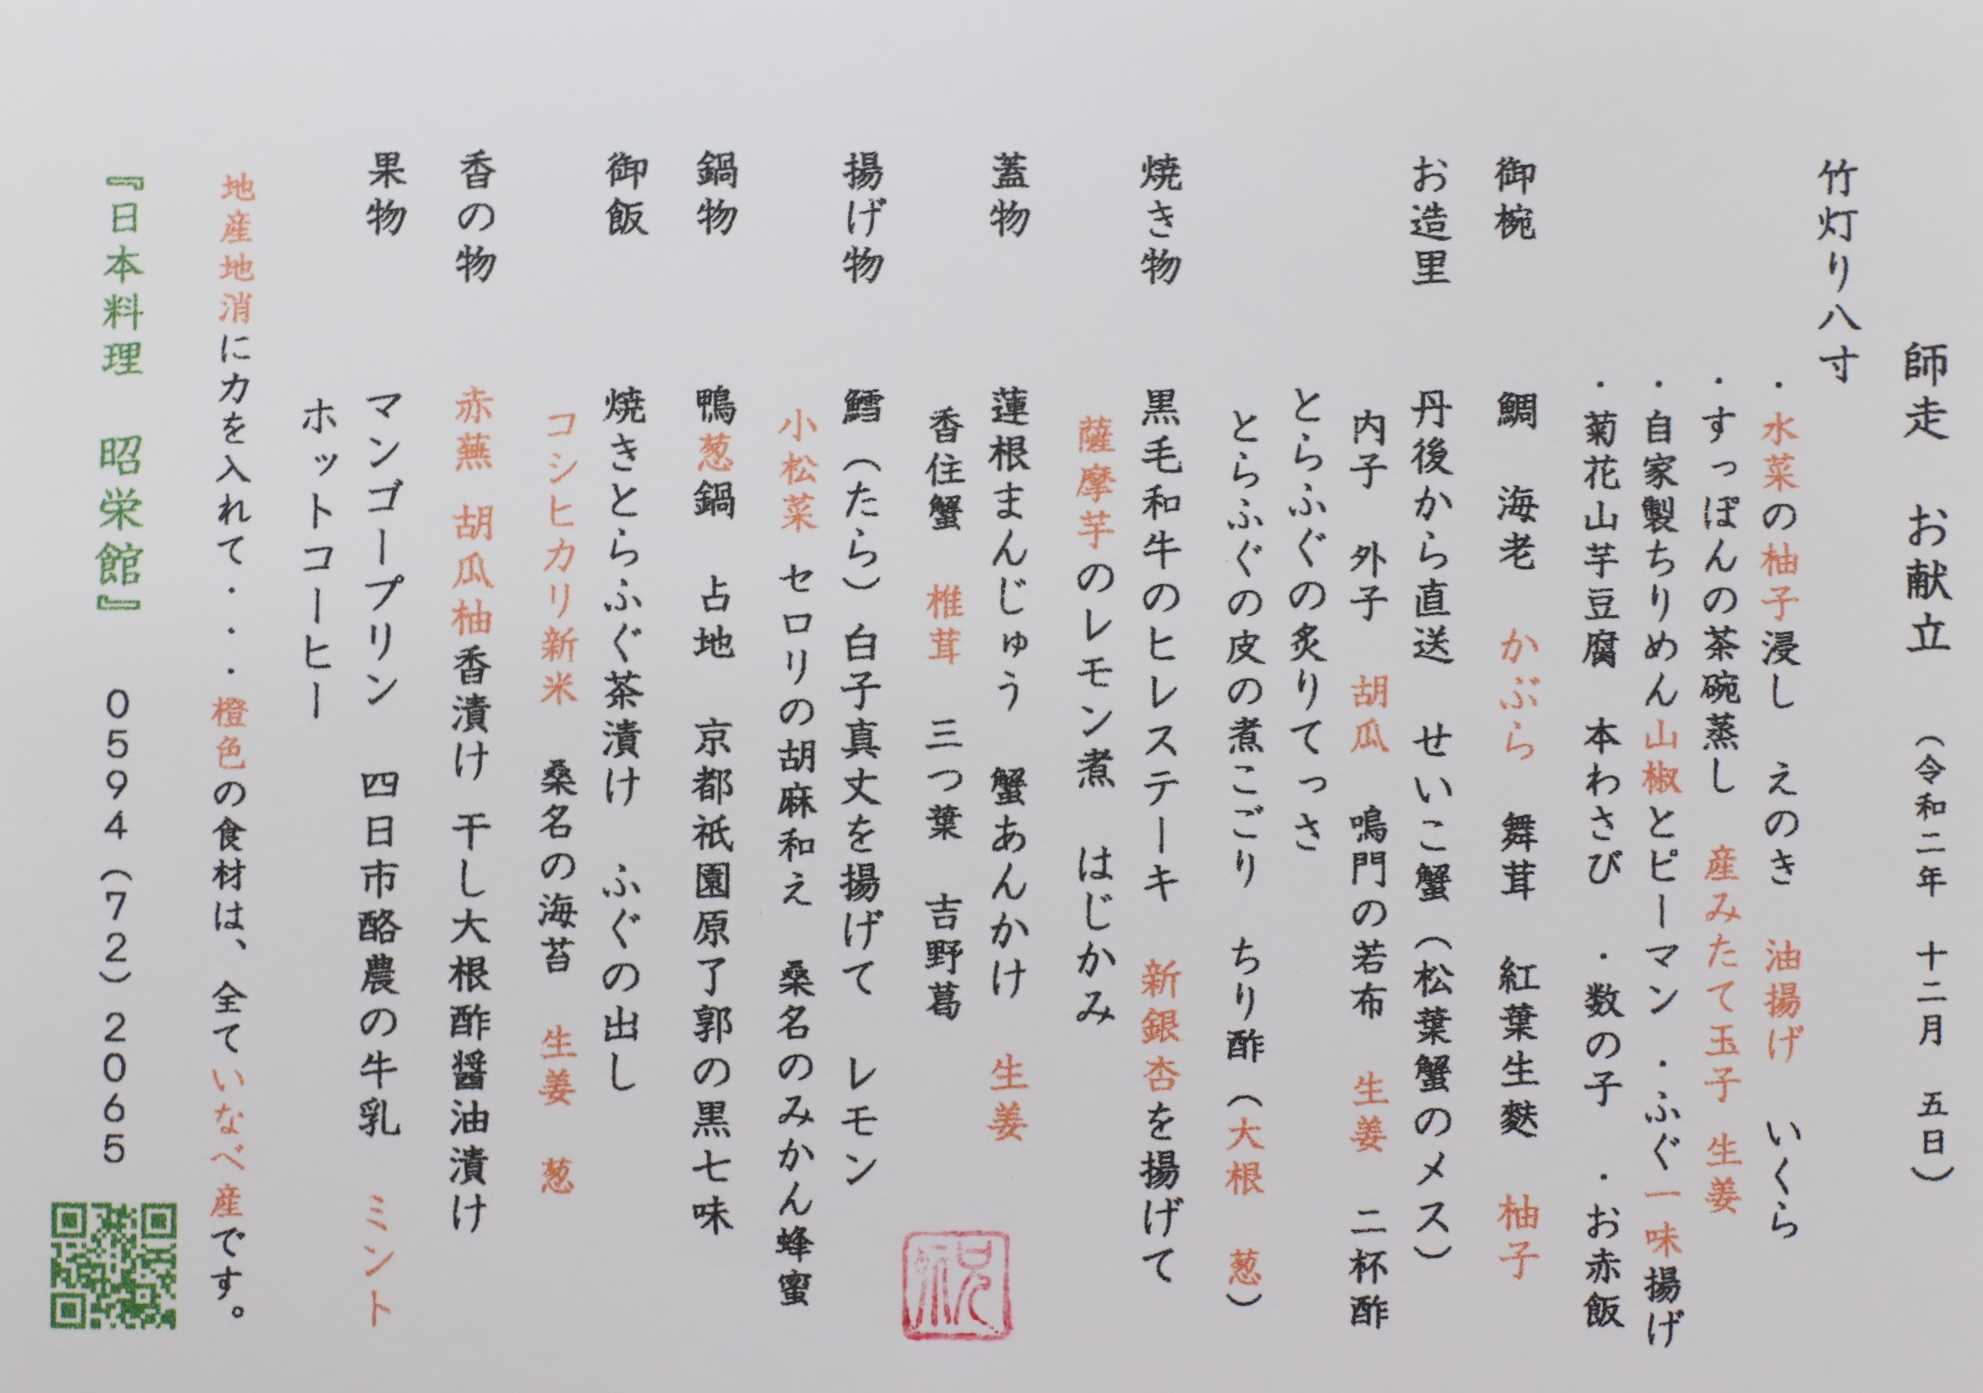 師走　お献立　（令和二年　十二月　五日）
竹灯り八寸
・水菜の柚子浸し　えのき　油揚げ　いくら
・すっぽんの茶碗蒸し　産みたて玉子　生姜
・自家製ちりめん山椒とピーマン　・ふぐ一味揚げ
・菊花山芋豆腐　本わさび　・数の子　・お赤飯
御椀　鯛　海老　かぶら　舞茸　紅葉生麩　柚子
お造里　丹後から直送　せいこ蟹（松葉蟹のメス）
内子　外子　胡瓜　鳴門の若布　生姜　二杯酢
とらふぐの炙りてっさ
とらふぐの皮の煮こごり　ちり酢（大根　葱）
焼き物　黒毛和牛のヒレステーキ　新銀杏を揚げて
薩摩芋のレモン煮　はじかみ
蓋物　蓮根まんじゅう　蟹あんかけ　生姜
香住蟹　椎茸　三つ葉　吉野葛
揚げ物　鱈（たら）白子真丈を揚げて　レモン
小松菜　セロリの胡麻和え　桑名のみかん蜂蜜
鍋物　鴨葱鍋　占地　京都祇園原了郭の黒七味
御飯　焼きとらふぐ茶漬け　ふぐの出し
コシヒカリ新米　桑名の海苔　生姜　葱
香の物　赤蕪　胡瓜柚香漬け　干し大根酢醤油漬け
果物　マンゴープリン　四日市酪農の牛乳　ミント
ホットコーヒー
地産地消に力を入れて・・・橙色の食材は、全ていなべ産です。
『日本料理　昭栄館』　０５９４（７２）２０６５
祝